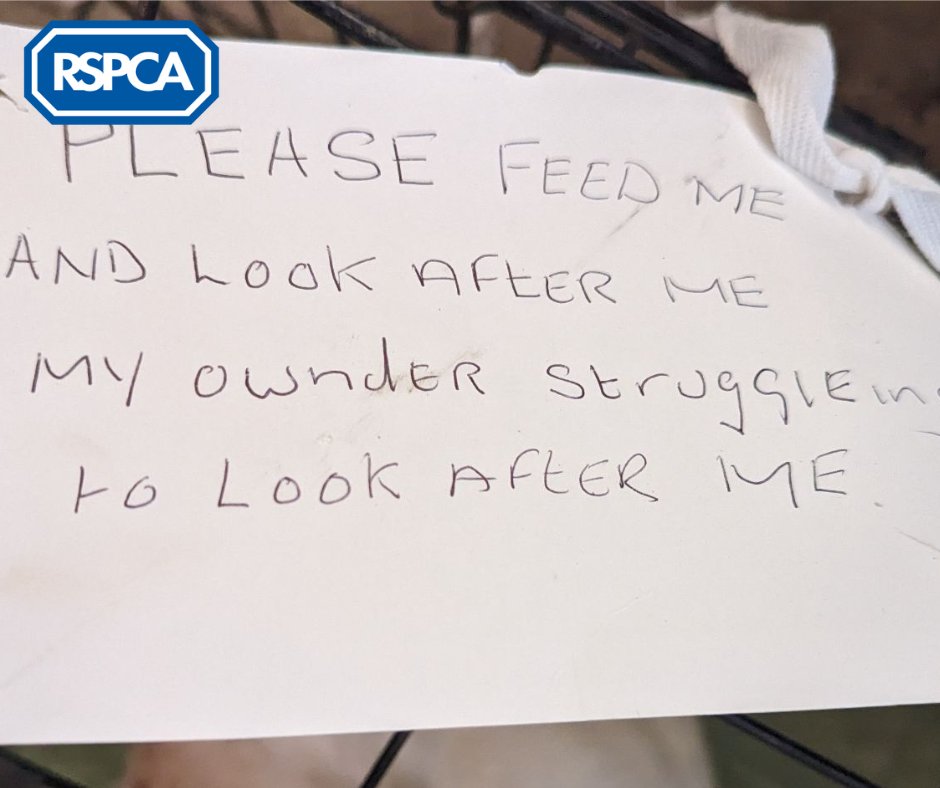 RSPCA
PLEASE FEED ME
AND LOOK AFtER ME
MY OwndER StruggLEin
to LOOK AFtER ME.